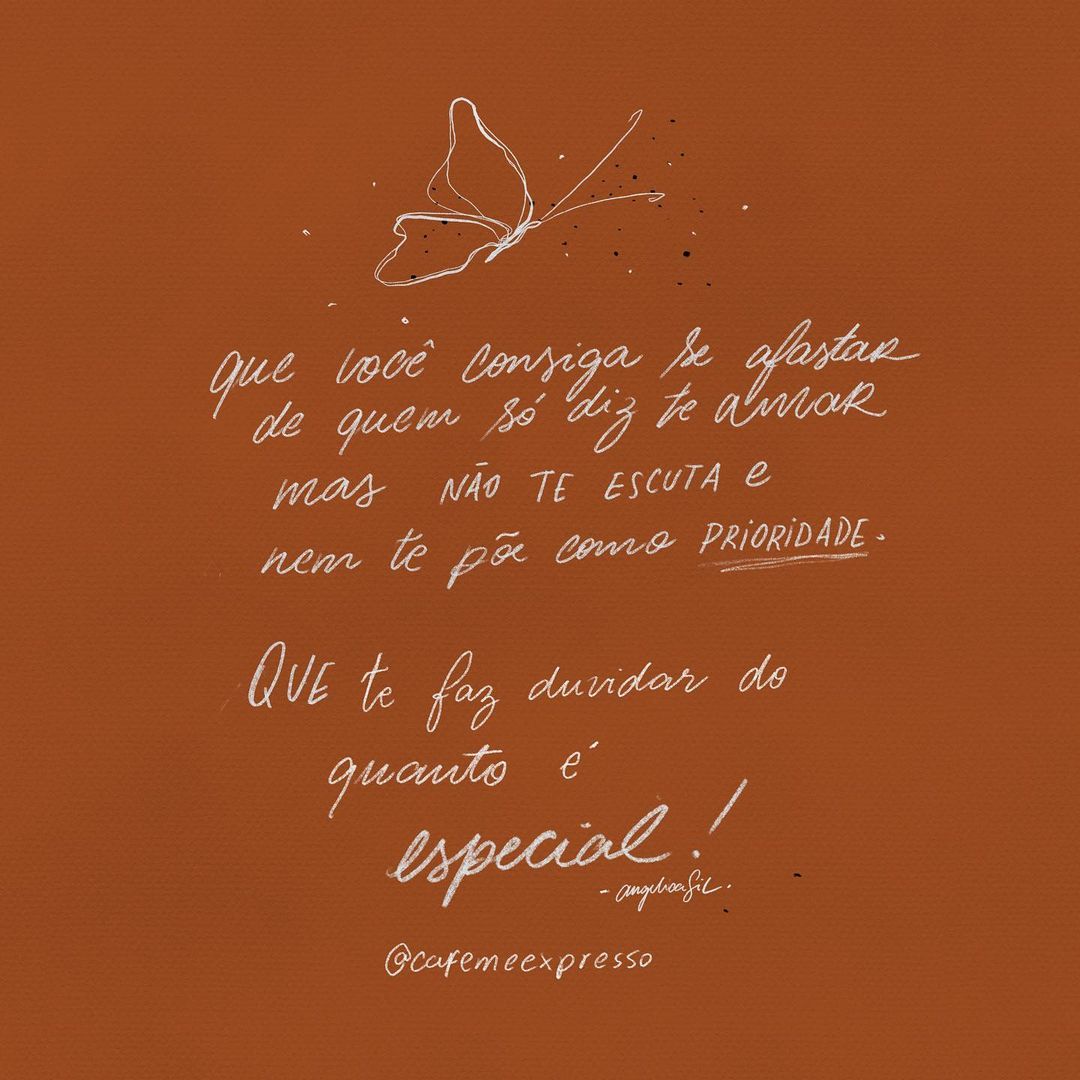 que você consiga se afastar
de quem só diz te amar
mas NÃO TE ESCUTA e
nem te põe como PRIORIDADE.
QUE te faz duvidar do
quanto é
especial!
@cafemeexpresso